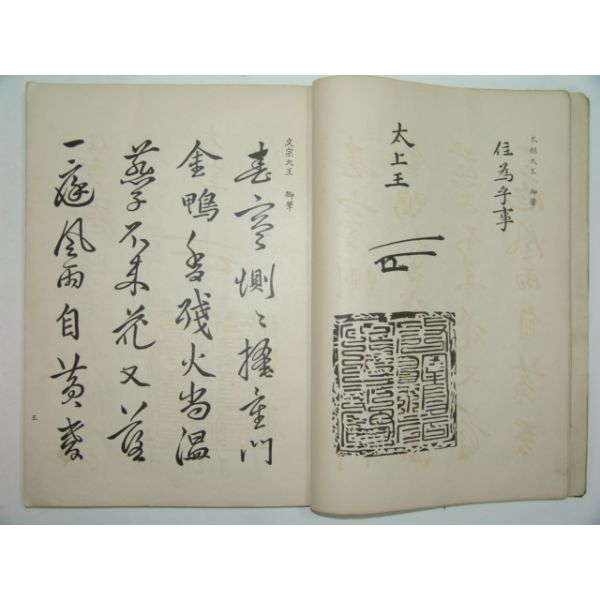 太祖大王 御筆
住為乎事
太上王
文宗大王 御筆
春寒惻〻掩重門
金鴨香殘火尚溫
燕子不来花又落
一庭風雨自黃昏
三